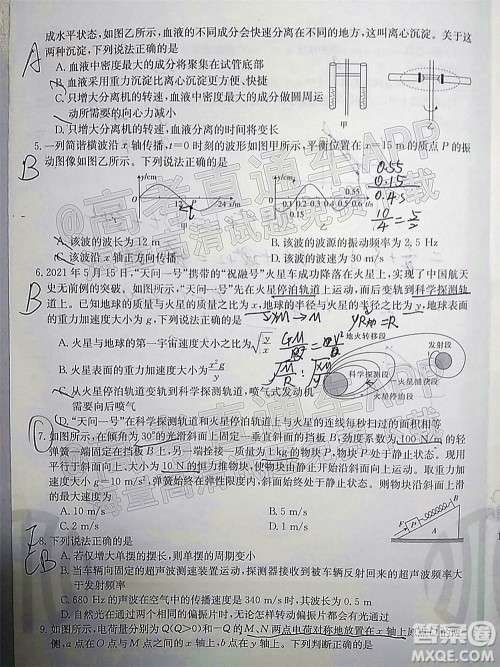 成水平状态，如图乙所示，血液的不同成分会快速分离在不同的地方，这叫离心沉淀。关于这
两种沉淀，下列说法正确的是
A
A. 血液中密度最大的成分将聚集在试管底部
B. 血液采用重力沉淀比离心沉淀更方便、快捷
C. 只增大分离机的转速，血液中密度最大的成分做圆周运
动所需要的向心力减小
D. 只增大分离机的转速，血液分离的时间将变长
甲
乙
5. 一列简谐横波沿 x 轴传播，t=0 时刻的波形如图甲所示，平衡位置在 x=15 m 的质点 P 的振
动图像如图乙所示。下列说法正确的是
B
y/cm
P
12
24 x/m
甲
y/cm
0.55
0.1 0.2 0.3 0.4 0.5 0.6 t/s
0.15
乙
0.55
0.15
0.4s
A. 该波的波长为 12 m
B. 该波的波源的振动频率为 2.5 Hz
C. 该波沿 x 轴正方向传播
D. 该波的波速大小为 40 m/s
6. 2021 年 5 月 15 日，“天问一号”携带的“祝融号”火星车成功降落在火星上，实现了中国航天
史无前例的突破。如图所示，“天问一号”先在火星停泊轨道上运动，而后变轨到科学探测轨
道上。已知地球的质量与火星的质量之比为 x，地球的半径与火星的半径之比为 y，地球表面
的重力加速度大小为 g，下列说法正确的是
B
A. 火星与地球的第一宇宙速度大小之比为
B. 火星表面的重力加速度大小为
C. 从火星停泊轨道变轨到科学探测轨道，喷气式发动机
需要向后喷气
D. “天问一号”在科学探测轨道和火星停泊轨道上与火星的连线每秒扫过的面积相等
地火转移段
发射段
科学探测段
火星捕获段
火星停泊段
7. 如图所示，在倾角为 30°的光滑斜面上固定一垂直斜面的挡板 B，劲度系数为 100 N/m 的轻
弹簧一端固定在挡板 B 上，另一端拴接一质量为 1 kg 的物块 P，物块 P 处于静止状态。现用
平行于斜面方向、大小为 10 N 的恒力推物块，使物块由静止开始沿斜面方向向上运动。取重力加
速度大小 g=10 m/s²，弹簧始终处于弹性限度内，斜面始终处于静止状态。则物块沿斜面上滑
的最大速度为
A. 10 m/s
B. 5 m/s
C. 2 m/s
D. 1 m/s
8. 下列说法正确的是
A. 若仅增大单摆的摆长，则单摆的周期变小
B. 当车辆向固定的超声波测速装置运动，探测器接收到被车辆反射回来的超声波频率大
于发射频率
C. 680 Hz 的声波在空气中的传播速度是 340 m/s 时，其波长为 0.5 m
D. 自然光在通过两个相同的偏振片时，无论怎样调整偏振片，都会有光通过
9. 如图所示，电荷量分别为 Q(Q>0) 和 -Q 的 M、N 两点电荷对称地放置在 x 轴上原点 O 的两
侧，a 点在 O 点与点电荷 M 之间，b 点在 y 轴上。下列判断正确的是